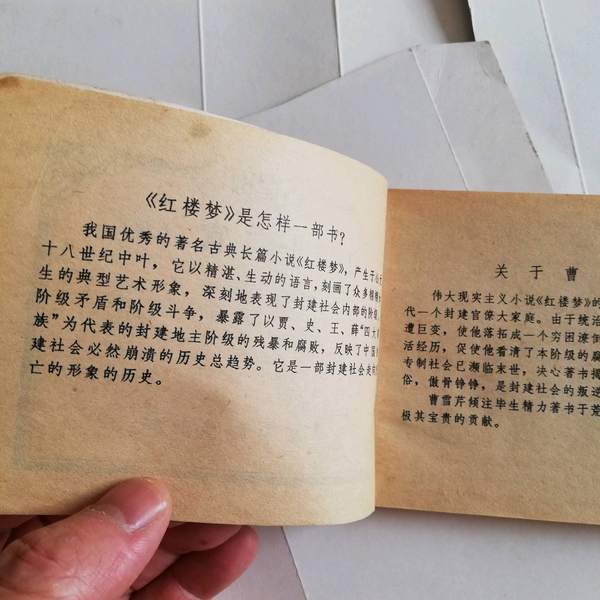 《红楼梦》是怎样一部书？
我国优秀的著名古典长篇小说《红楼梦》，产生于
十八世纪中叶，它以精湛、生动的语言，刻画了众多栩栩
生的典型艺术形象，深刻地表现了封建社会内部的阶级
阶级矛盾和阶级斗争，暴露了以贾、史、王、薛“四大
族”为代表的封建地主阶级的残暴和腐败，反映了中国
建社会必然崩溃的历史总趋势。它是一部封建社会
亡的形象的历史。
关于曹
伟大现实主义小说《红楼梦》的
代一个封建官僚大家庭。由于统治
遭巨变，使他落拓成一个穷困潦倒
活经历，促使他看清了本阶级的腐
专制社会已濒临末世，决心著书揭
俗，傲骨铮铮，是封建社会的叛逆
曹雪芹倾注毕生精力著书于荒
极其宝贵的贡献。